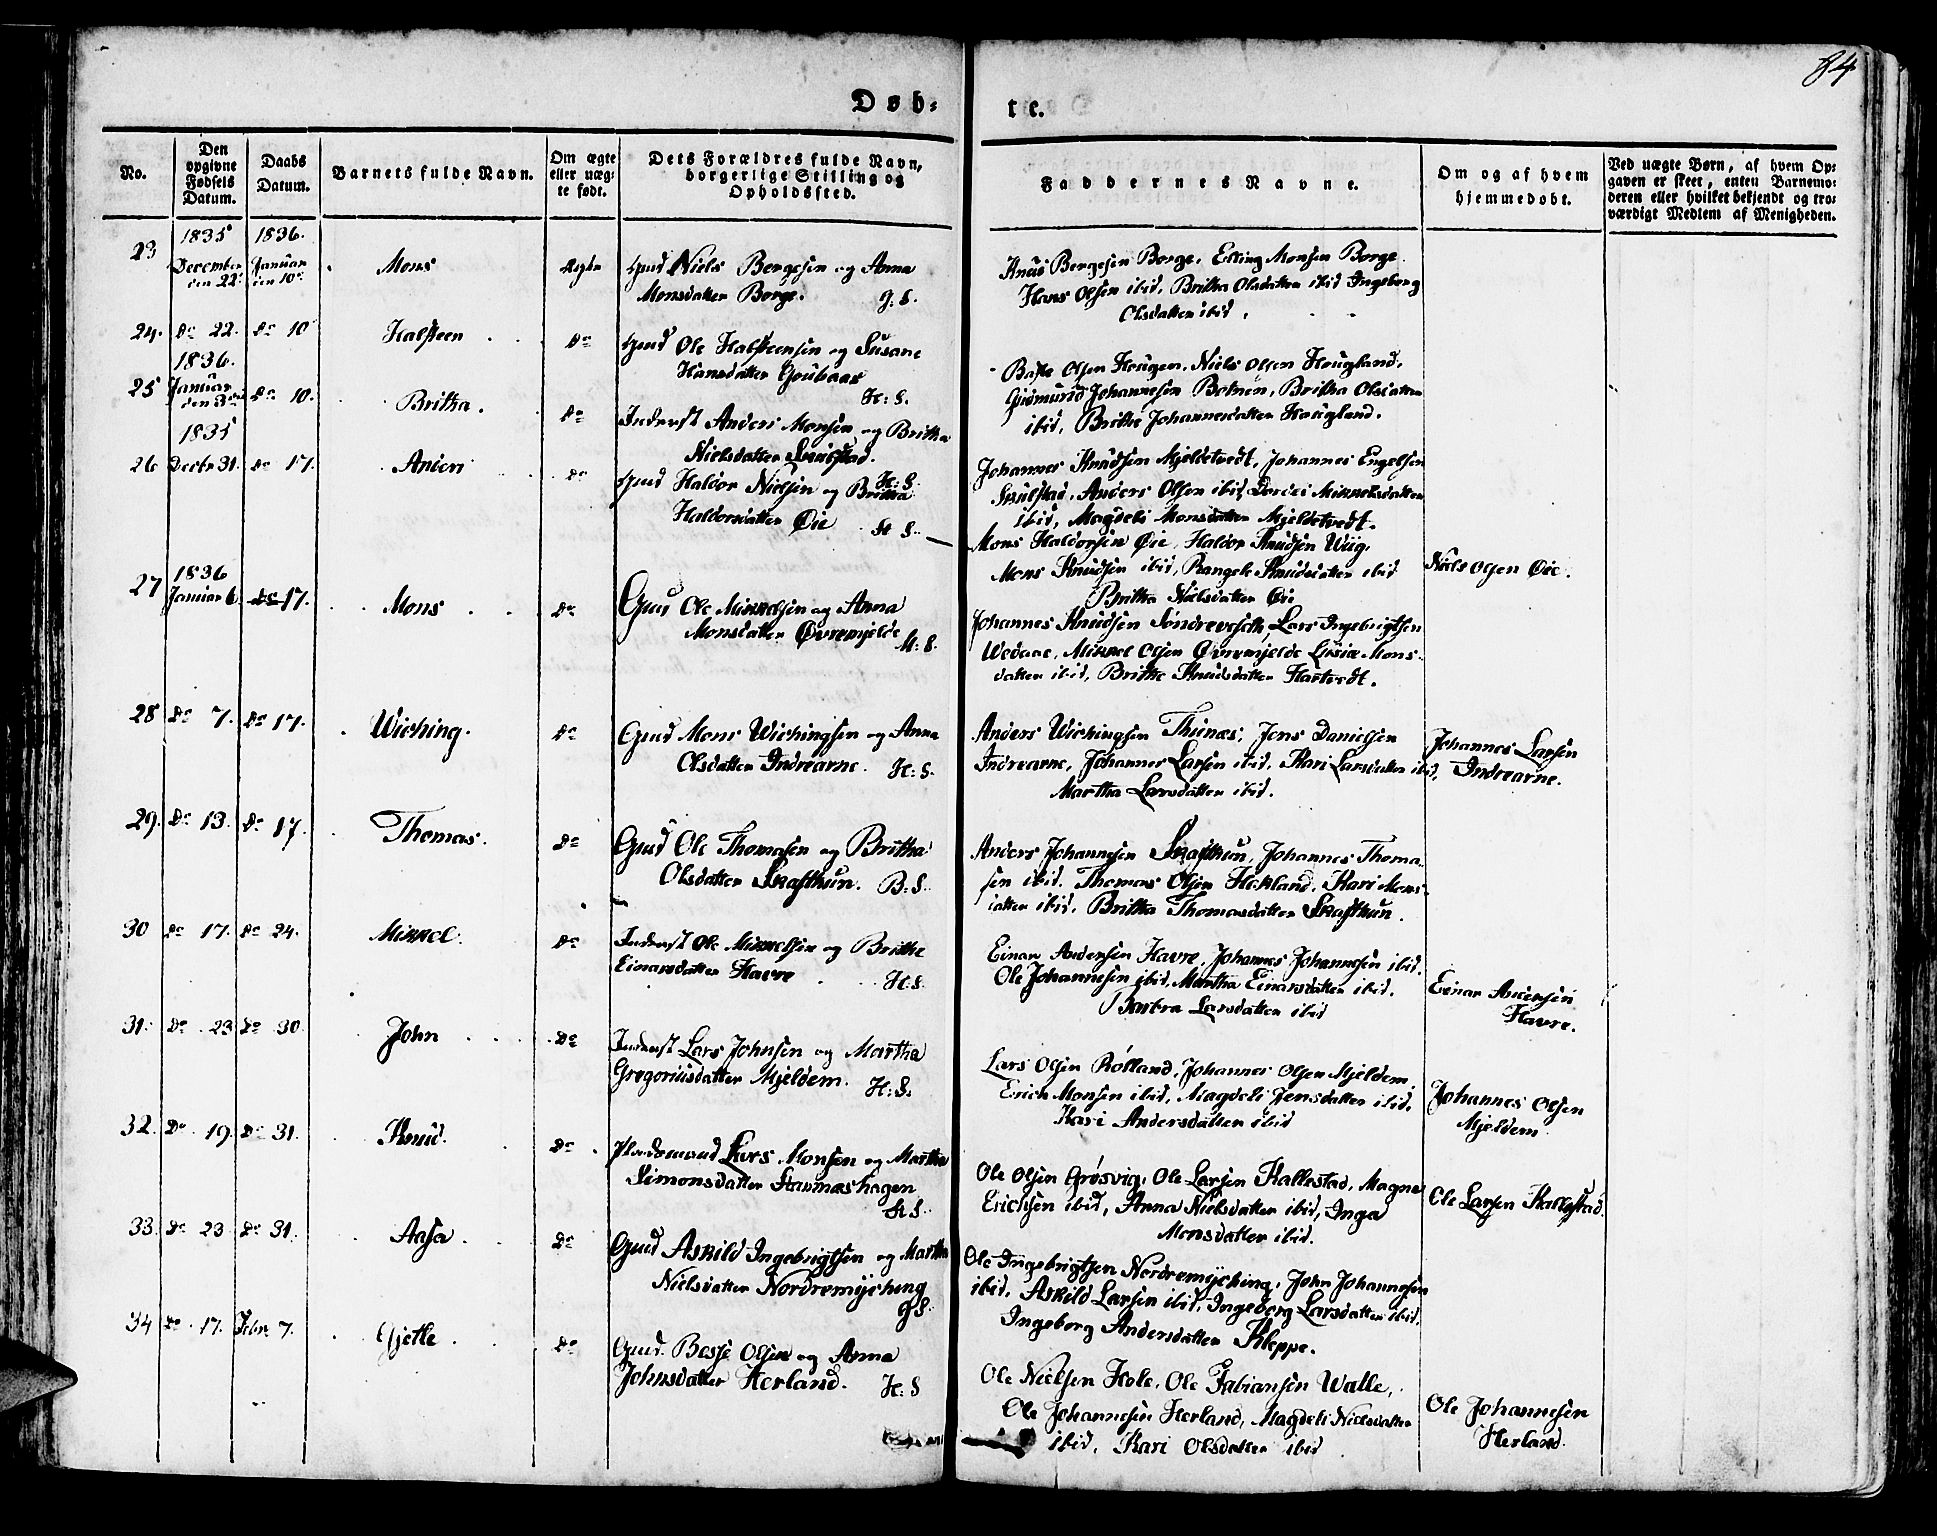 84
Døb-
te.
No.
Den
opgivne
Fødsels
Datum.
Daabs
Datum.
Barnets fulde Navn.
Om ægte
eller uæg-
te født.
Dets Forældres fulde Navn,
borgerlige Stilling og
Opholdssted.
Faddernes Navne.
Om og af hvem
hjemmedøbt.
Ved uægte Børn, af hvem Op-
gaven er skeet, enten Barnemo-
deren eller hvilket bekjendt og tro-
værdigt Medlem af Menigheden.
23
1835
December
den 22
1836.
Januar
den 10
Mons
Ægte
Gmd Niels Bergesen og Anna
Monsdatter Borge. G. S.
Knud Bergesen Borge, Erling Monsen Borge.
Hans Olsen ibid, Britha Olsdatter ibid Ingeborg
Olsdatter ibid.
24. Do 22. Do 10
Halsteen
Do
Gmd Ole Halsteensen og Susane
Hansdatter
H: S.
Olsen Hougen, Niels Olsen Hougland.
Gudmund Johannesen Botnen, Britha Olsdatter
ibid, Brithe Johannesdatter Hougland.
25
1836.
Januar
den 3die
Do 10.
Britha.
Do
Inderst Anders Monsen og Britha
Nielsdatter Sculstad.
H: S.
Johannes Knudsen Mjeldetvedt, Johannes Engelsen
Sculstad, Anders Olsen ibid, Dordei Mikkelsdatter
ibid, Magdeli Monsdatter Mjeldetvedt.
26
1835
Decbr 31. Do 17.
Do
Gmd Haldor Nielsen og Britha
Haldorsdatter Øie H S.
Mons Haldorsen Øie, Haldor Knudsen Wiig,
Mons Knudsen ibid, Rangele Knudsdatter ibid
Britha Nielsdatter Øie
Niels Olsen Øie.
27
1836
Januar 6. Do 17.
Mons
Do
Gmd Ole Mikkelsen og Anna
Monsdatter Øvremjelde
H: S.
Johannes Knudsen Søndreveseth, Lars Ingebrigtsen
Wedaae, Mikkel Olsen Øvremjelde Mons-
datter ibid, Brithe Knudsdatter Hartvedt.
28 Do 7. Do 17.
Wiching.
Do
Gmd Mons Wichingsen og Anna
Olsdatter Indrearne. H: S.
Anders Wichingsen Thunæs, Jens Danielsen
Indrearne, Johannes Larsen ibid, Kari Larsdatter ibid,
Martha Larsdatter ibid.
Johannes Larsen
Indrearne.
29. Do 13. Do 17.
Thomas.
Do
Gmd Ole Thomasen og Britha
Olsdatter Skafthun. B: S.
Anders Johannesen Skafthun, Johannes Thoma-
sen ibid. Thomas Olsen Hekland, Kari Mons-
datter ibid, Britha Thomasdatter Skafthun.
30 Do 17. Do 24.
Mikkel.
Do
Inderst Ole Mikkelsen og Brithe
Einarsdatter Havre H: S.
Einar Andersen Havre, Johannes Johannesen ibid.
Ole Johannesen ibid, Martha Einarsdatter ibid.
Barbra Larsdatter ibid
Einar Andersen
Havre.
31. Do 23 Do 30.
John
Do
Inderst Lars Johnsen og Martha
Gregoriusdatter Mjeldem. H: S.
Lars Olsen Rølland, Johannes Olsen Mjeldem,
Erich Monsen ibid, Magdeli Jensdatter ibid,
Kari Andersdatter ibid
Johannes Olsen
Mjeldem
32. Do 19. Do 31.
Knud.
Do
Pladsmand Lars Monsen og Martha
Simonsdatter Stamneshagen
H S.
Ole Olsen Grøsvig, Ole Larsen Kallestad, Magne
Erichsen ibid, Anna Nielsdatter ibid, Inga
Monsdatter ibid.
Ole Larsen Kallestad.
33. Do 23 Do 31.
Aasa.
Do
Gmd Askild Ingebrigtsen og Martha
Nielsdatter Nordremyching
G S.
Ole Ingebrigtsen Nordremyching, John Johannesen
ibid, Askild Larsen ibid, Ingeborg Larsdatter ibid.
Ingeborg Andersdatter Kleppe.
34 Do 17. Febr 7.
Gjetle
Do
Gmd. Olsen og Anna
Johnsdatter Herland. H: S
Ole Nielsen Hole, Ole Fabiansen Walle,
Ole Johannesen Herland, Magdeli Nielsdatter
ibid, Kari Olsdatter ibid
Ole Johannesen
Herland.